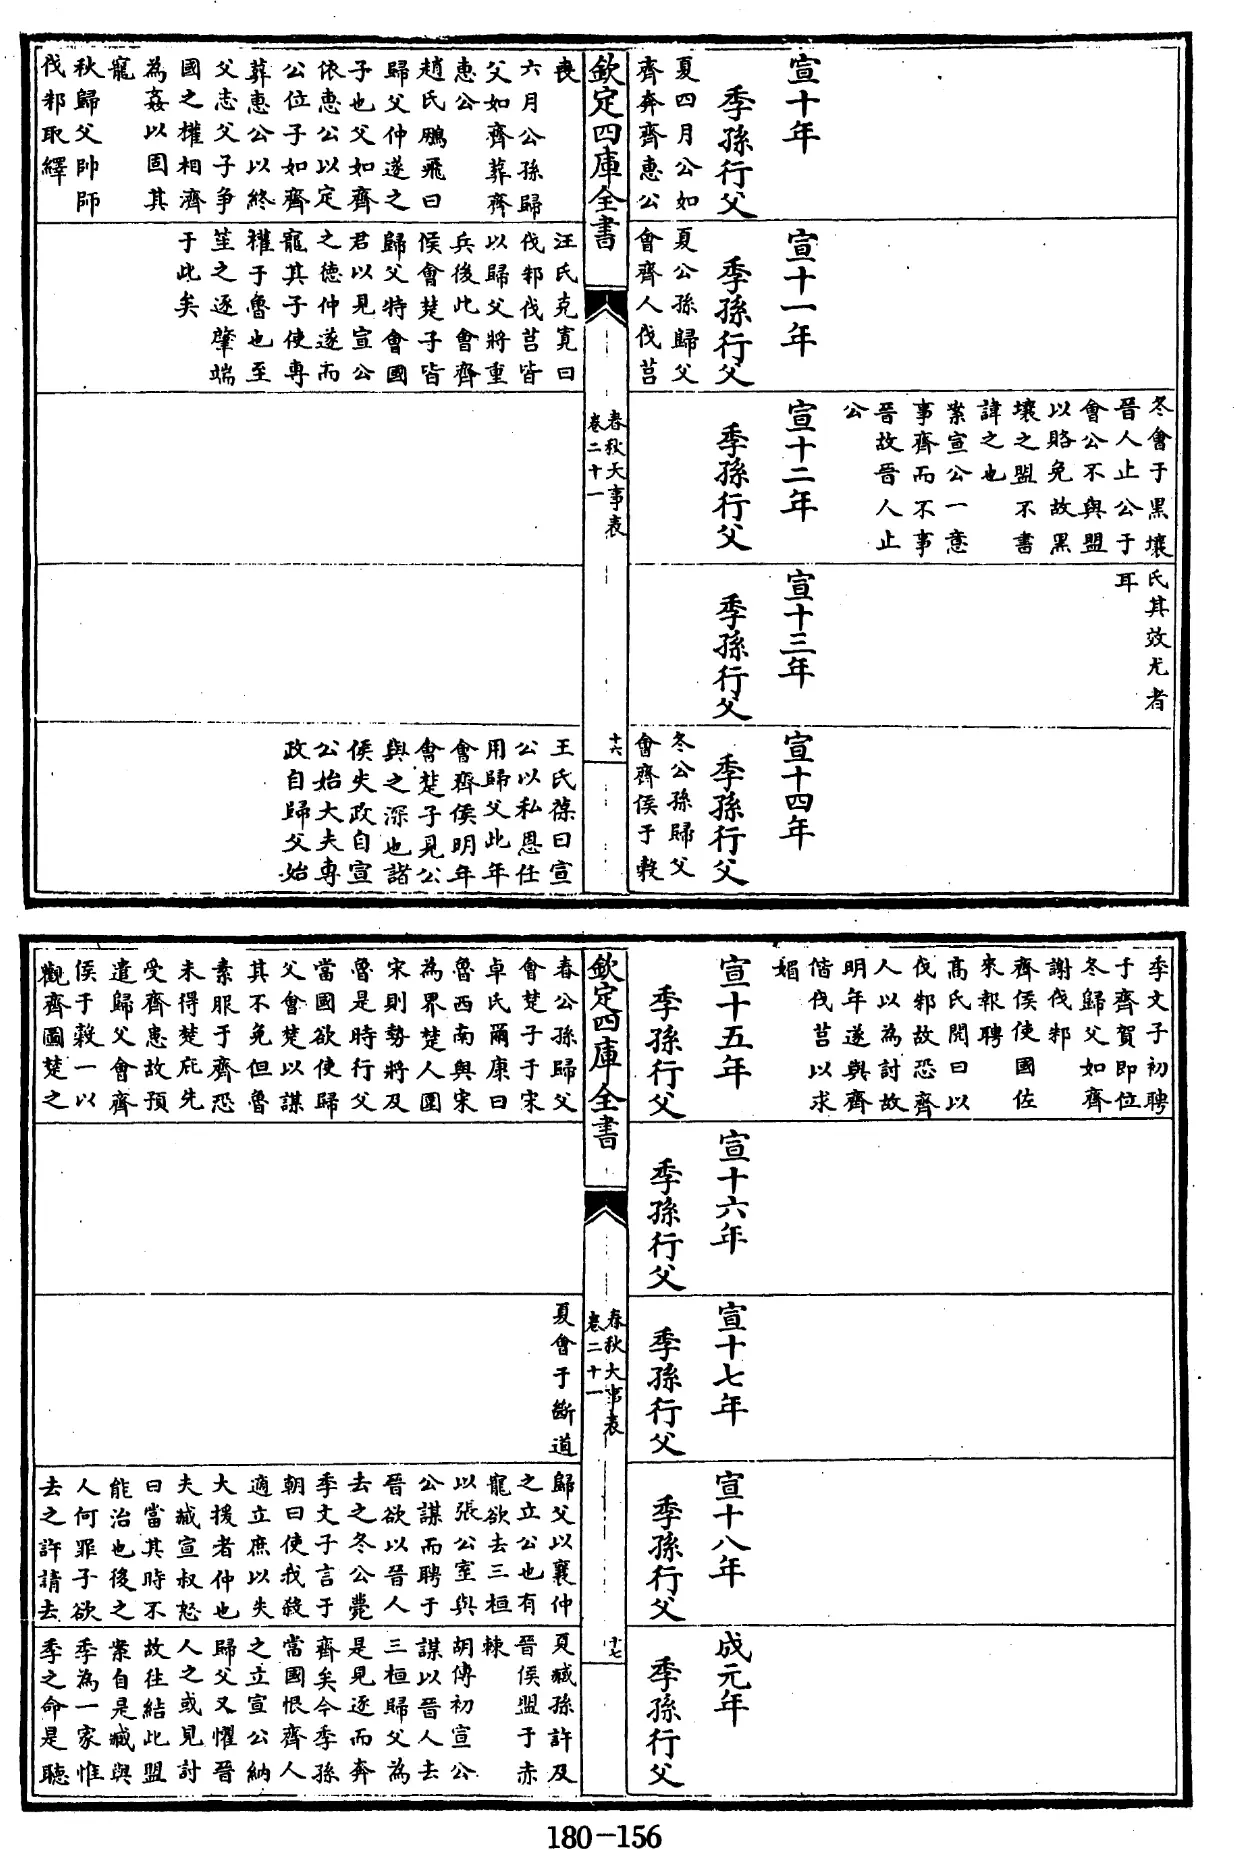 宣十年
季孫行父
夏四月公如
齊奔齊惠公
喪
六月公孫歸
父如齊葬齊
惠公
趙氏鵬飛曰
歸父仲遂之
子也父如齊
依惠公以定
公位子如齊
葬惠公以終
父志父子爭
國之權相濟
為姦以固其
寵
秋歸父帥師
伐邾取繹
宣十一年
季孫行父
夏公孫歸父
會齊人伐莒
汪氏克寬曰
伐邾伐莒皆
以歸父將重
兵後此會齊
侯會楚子皆
歸父特會國
君以見宣公
之德仲遂而
寵其子使專
權于魯也至
笙之逐肇端
于此矣
冬會于黑壤
晉人止公于
會公不與盟
以賂免故黑
壤之盟不書
諱之也
案宣公一意
事齊而不事
晉故晉人止
公
宣十二年
季孫行父
氏其效尤者
耳
宣十三年
季孫行父
宣十四年
季孫行父
冬公孫歸父
會齊侯于穀
王氏葆曰宣
公以私恩任
用歸父此年
會齊侯明年
會楚子見公
與之深也諸
侯失政自宣
公始大夫專
政自歸父始
欽定四庫全書
春秋大事表
卷二十一
十六
季文子初聘
于齊賀即位
冬歸父如齊
謝伐邾
齊侯使國佐
來報聘
高氏閌曰以
伐邾故恐齊
人以為討故
明年遂與齊
偕伐莒以求
媚
宣十五年
季孫行父
春公孫歸父
會楚子于宋
卓氏爾康曰
魯西南與宋
為界楚人圍
宋則勢將及
魯是時行父
當國欲使歸
父會楚以謀
其不免但魯
素服于齊恐
未得楚庇先
受齊患故預
遣歸父會齊
侯于穀一以
觀齊圖楚之
宣十六年
季孫行父
宣十七年
季孫行父
夏會于斷道
宣十八年
季孫行父
歸父以襄仲
之立公也有
寵欲去三桓
以張公室與
公謀而聘于
晉欲以晉人
去之冬公薨
季文子言于
朝曰使我殺
適立庶以失
大援者仲也
夫臧宣叔怒
曰當其時不
能治也後之
人何罪子欲
去之許請去
成元年
季孫行父
夏臧孫許及
晉侯盟于赤
棘
胡傅初宣公
謀以晉人去
三桓歸父為
是見逐而奔
齊矣今季孫
當國恨齊人
之立宣公納
歸父又懼晉
人之或見討
故往結此盟
案自是臧與
季為一家惟
季之命是聽
欽定四庫全書
春秋大事表
卷二十一
十七
180-156